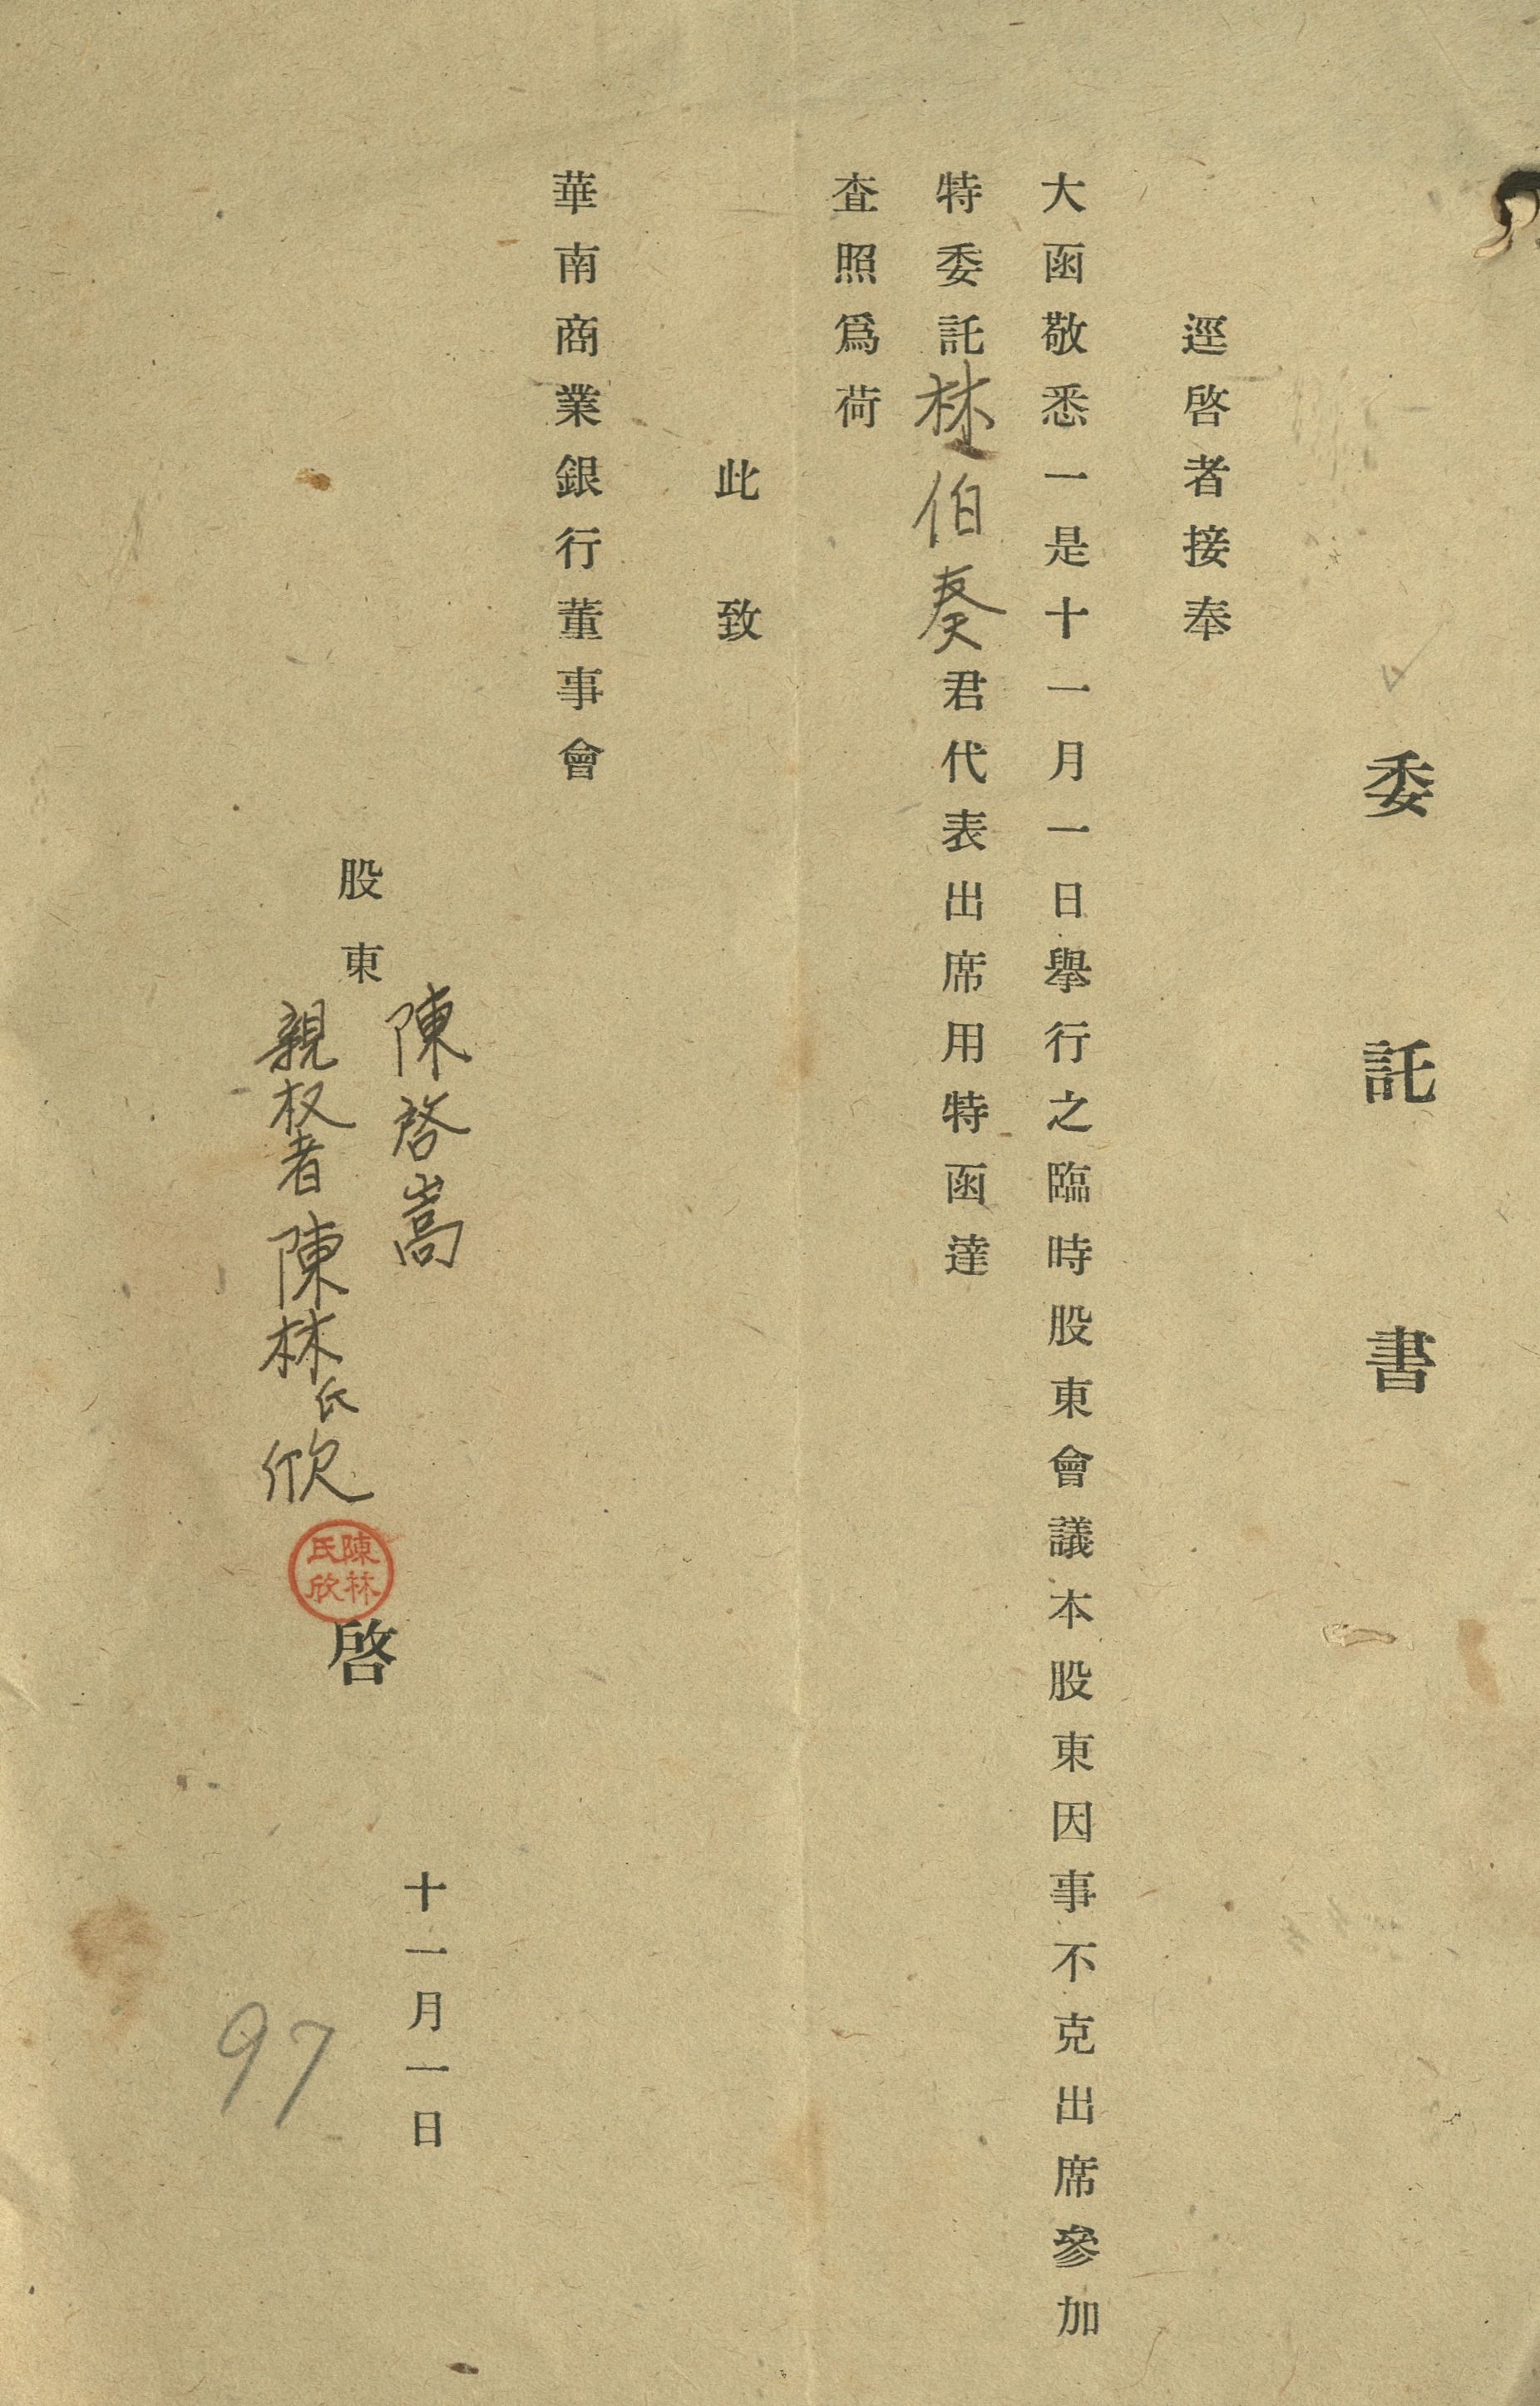 委託書
逕啓者接奉
大函敬悉一是十一月一日舉行之臨時股東會議本股東因事不克出席參加
特委託林伯奏君代表出席用特函達
査照爲荷
此致
華南商業銀行董事會
股東
陳啓嵩
親权者陳林氏欣
陳林氏欣
啓
十一月一日
97